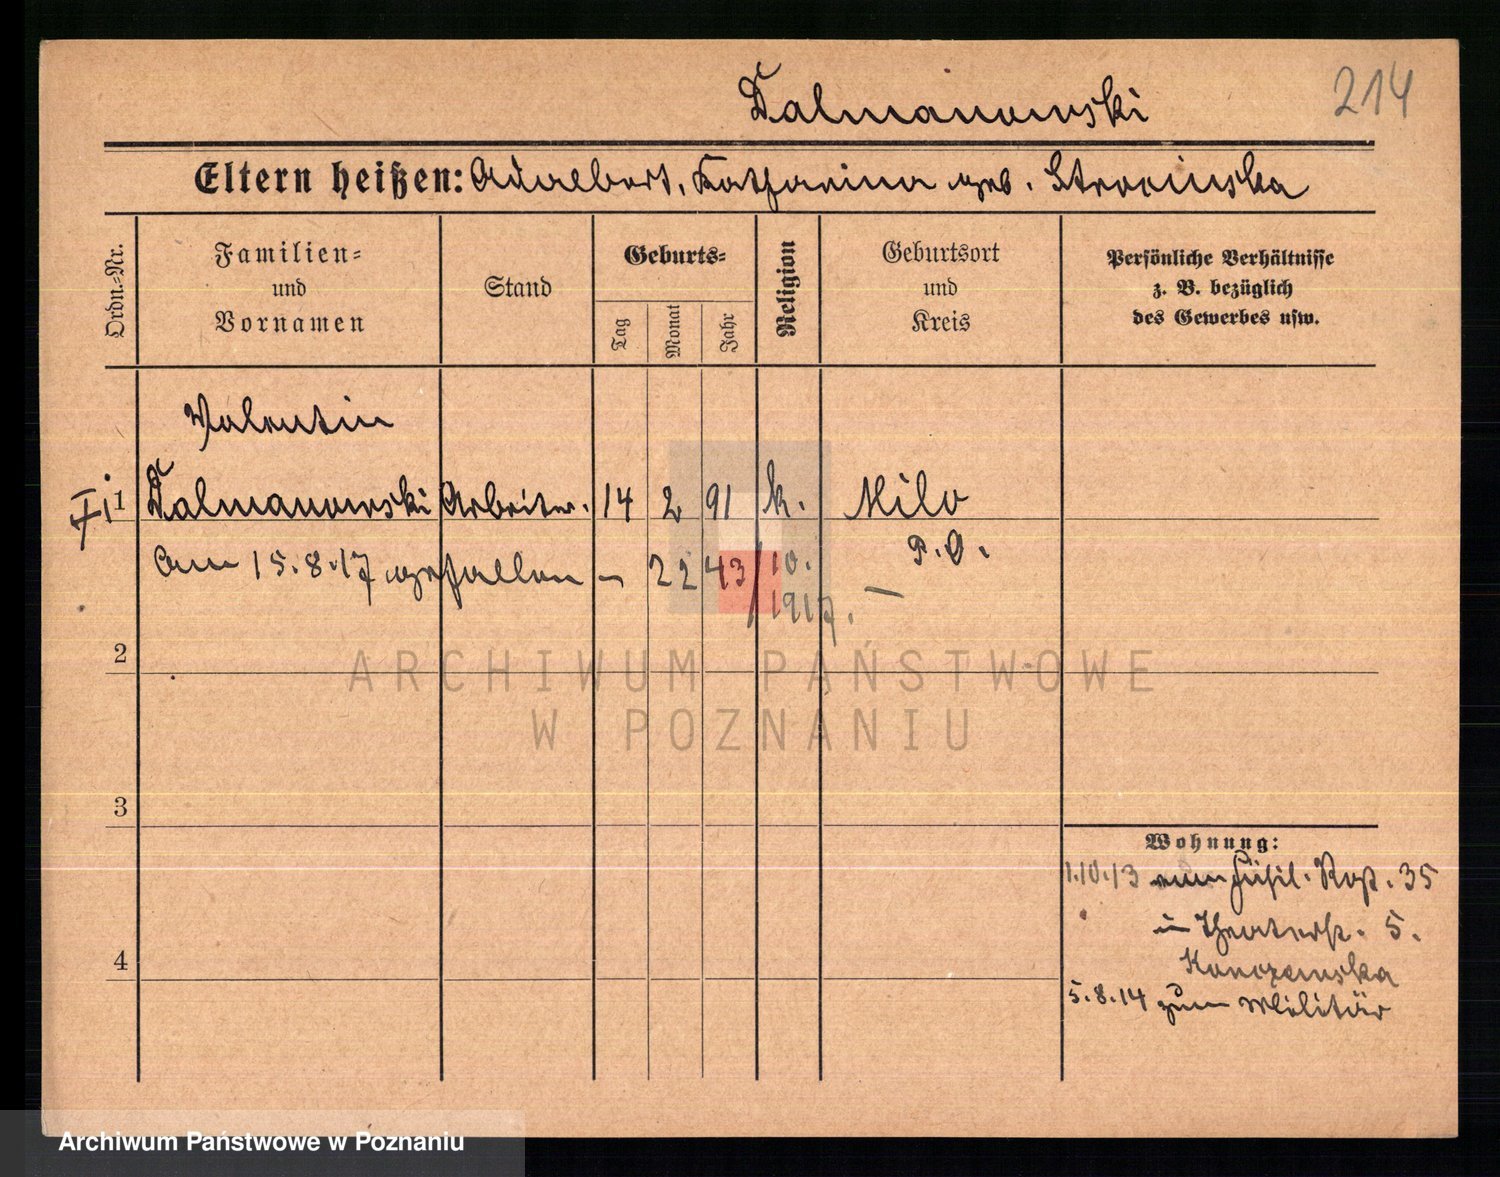 214
Dalmanowski
Eltern heißen: Adalbert, Katharina geb. Strocinska
Ordn.-Nr.
Familien-
und
Vornamen
Stand
Geburts-
Tag
Monat
Jahr
Religion
Geburtsort
und
Kreis
Persönliche Verhältnisse
z. B. bezüglich
des Gewerbes usw.
Valentin
1 Dalmanowski Arbeiter. 14 2 91 k. Milo
P. O.
am 15.8.17 gefallen – 2243/10.
1917. –
2
3
4
Wohnung:
1.10.13 vom Füsil. Rgt. 35
in Theaterstr. 5.
5.8.14 zum Militär
ARCHIWUM PAŃSTWOWE
W POZNANIU
Archiwum Państwowe w Poznaniu